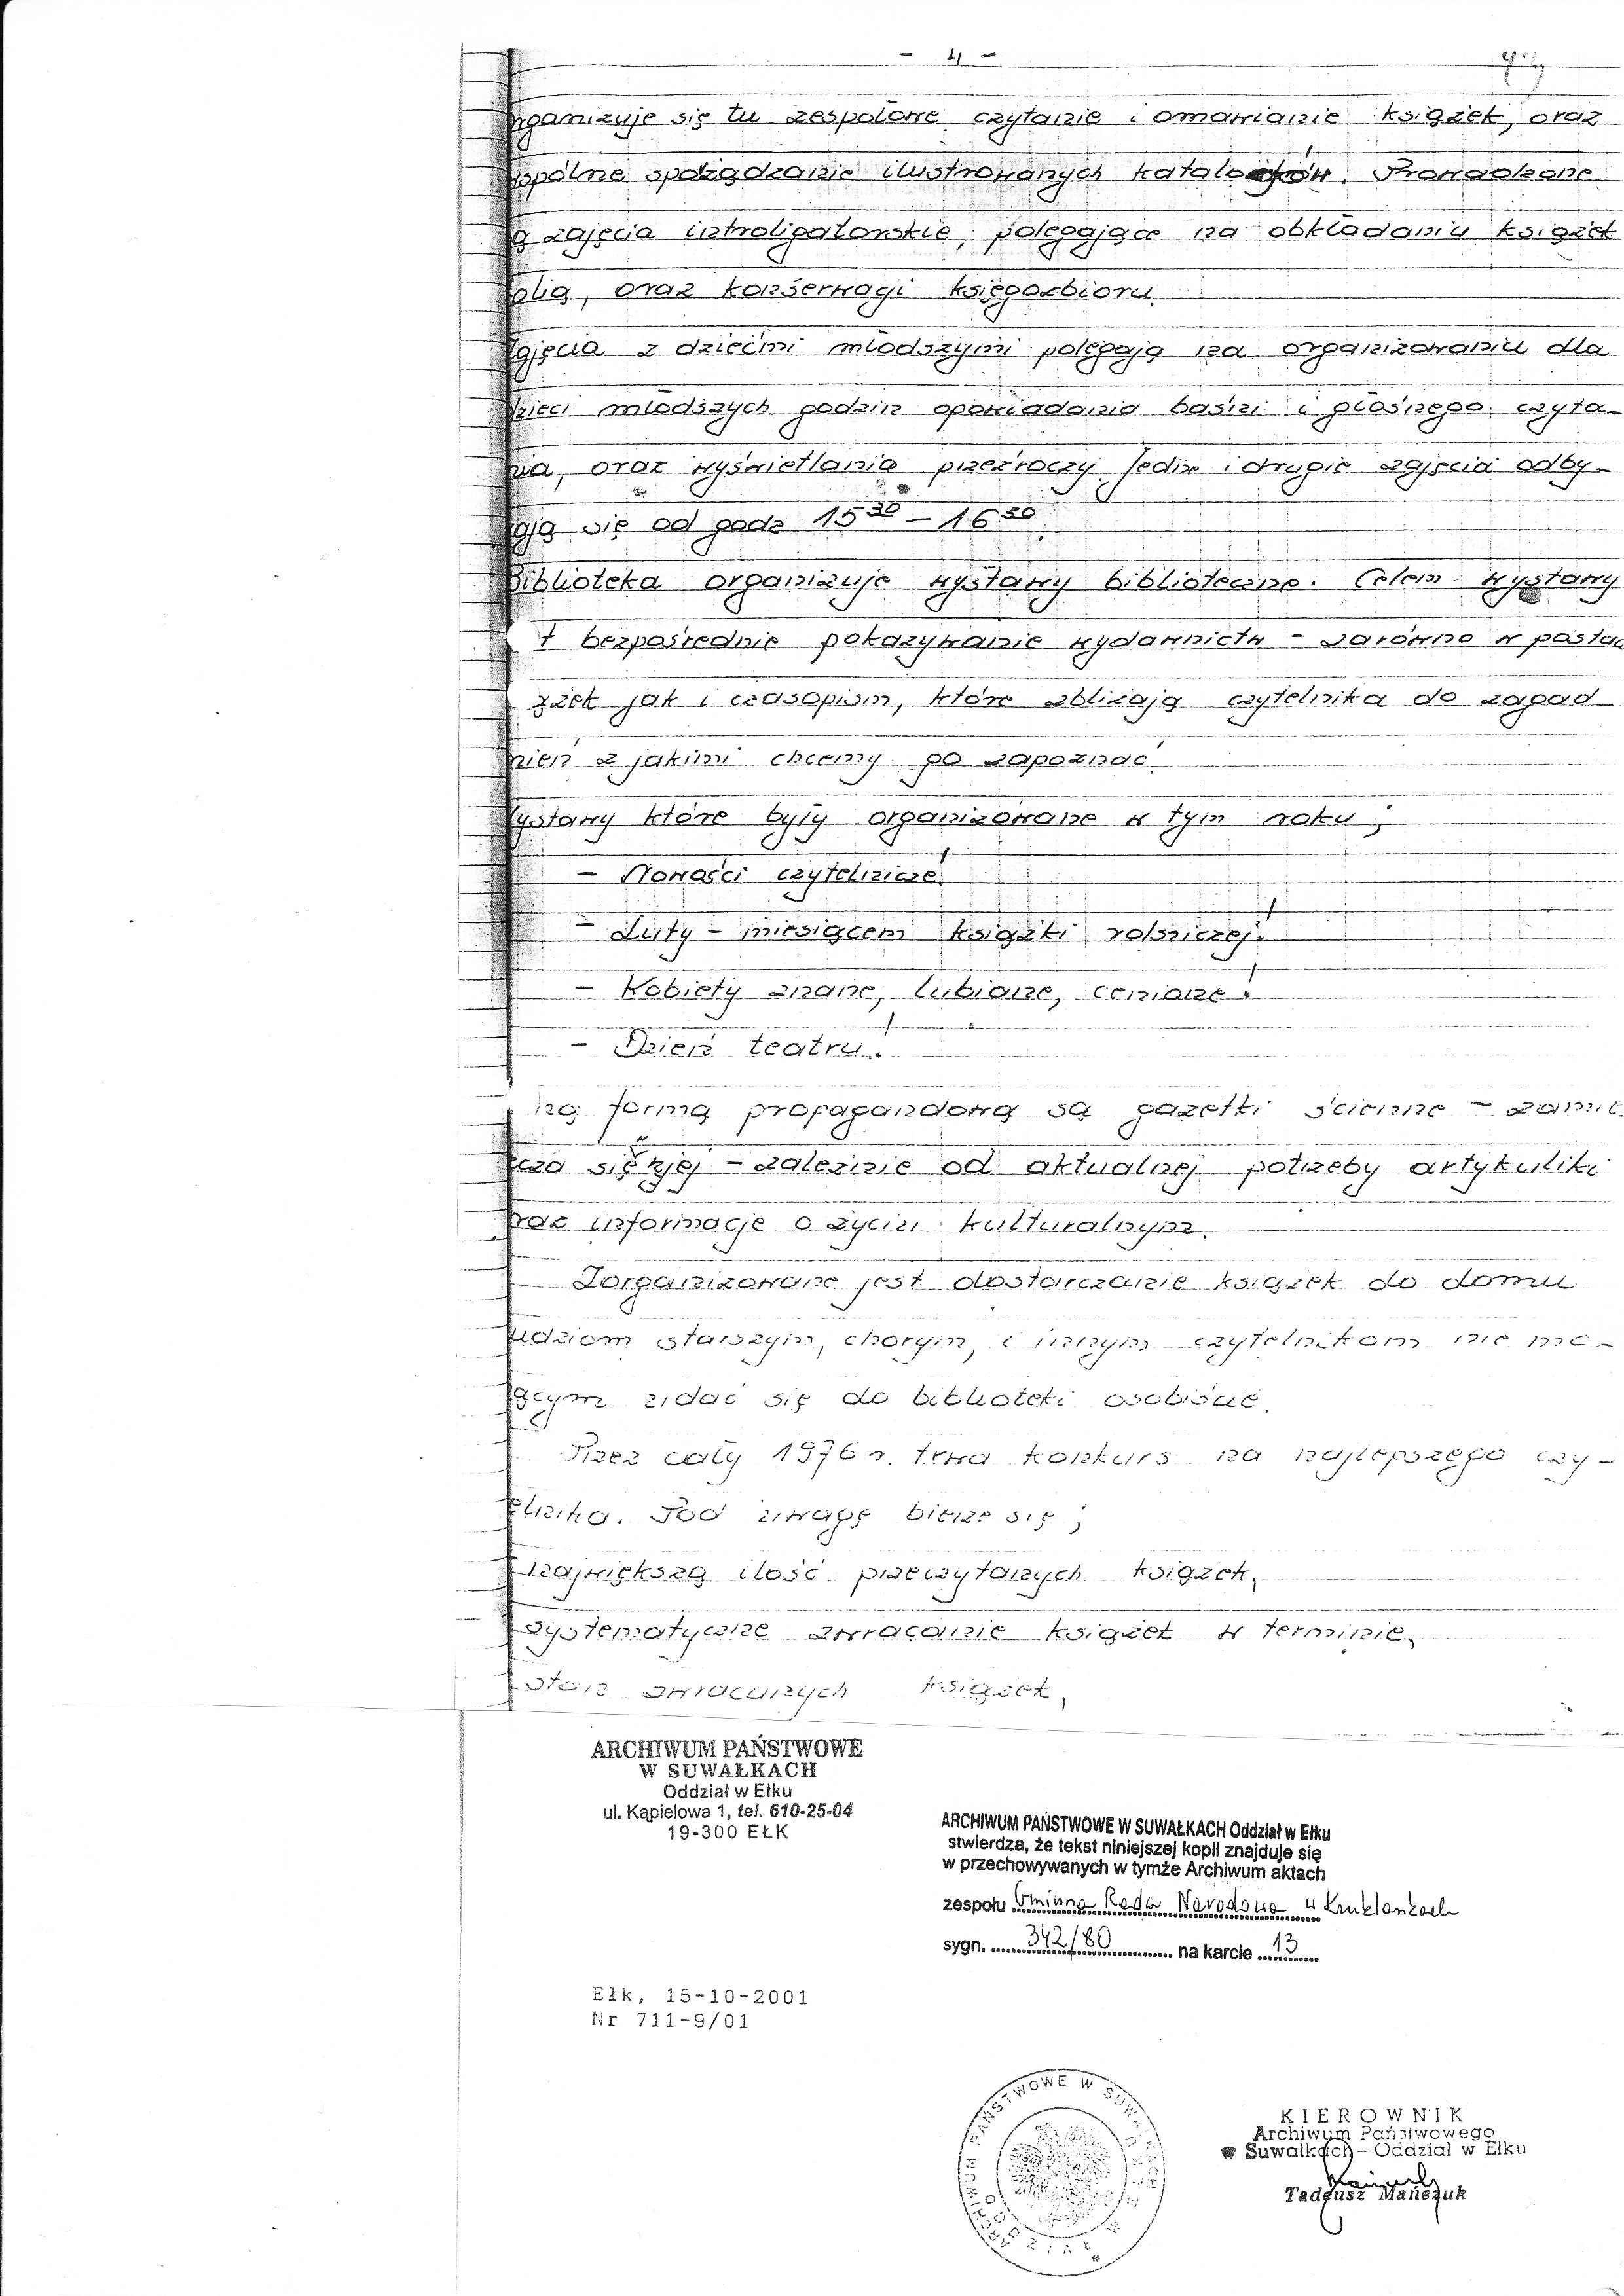 - 4 -
rganizuje się tu zespołowe czytanie i omawianie książek, oraz
spólne sporządzanie ilustrowanych katalogów. Prowadzone
ą zajęcia introligatorskie, polegające na obkładaniu książek
olią, oraz konserwacji księgozbioru.
ajęcia z dziećmi młodszymi polegają na organizowaniu dla
dzieci młodszych godzin opowiadania baśni i głośnego czyta-
nia, oraz wyświetlania przeźroczy. Jedne i drugie zajęcia odby-
ają się od godz 15³⁰ - 16³⁰.
Biblioteka organizuje wystawy biblioteczne. Celem wystawy
t bezpośrednie pokazywanie wydawnictw - zarówno w postac
ążek jak i czasopism, które zbliżają czytelnika do zagad-
nień z jakimi chcemy go zapoznać.
ystawy które były organizowane w tym roku;
- Nowości czytelnicze!
- Luty - miesiącem książki rolniczej!
- Kobiety znane, lubiane, cenione!
- Dzień teatru!
ną formą propagandową są gazetki ścienne - zamie
cza się w niej - zależnie od aktualnej potrzeby artykuliki
raz informacje o życiu kulturalnym.
Zorganizowane jest dostarczanie książek do domu
udziom starszym, chorym, i innym czytelnikom nie mo-
ącym udać się do biblioteki osobiście.
Przez cały 1976 r. trwa konkurs na najlepszego czy-
elnika. Pod uwagę bierze się;
największą ilość przeczytanych książek,
systematyczne zwracanie książek w terminie,
stan zwracanych książek,
ARCHIWUM PAŃSTWOWE
W SUWAŁKACH
Oddział w Ełku
ul. Kąpielowa 1, tel. 610-25-04
19-300 EŁK
ARCHIWUM PAŃSTWOWE W SUWAŁKACH Oddział w Ełku
stwierdza, że tekst niniejszej kopii znajduje się
w przechowywanych w tymże Archiwum aktach
zespołu Gminna Rada Narodowa w Kruklankach
sygn. 342/80 na karcie 13
Ełk, 15-10-2001
Nr 711-9/01
ARCHIWUM PAŃSTWOWE W SUWAŁKACH
KIEROWNIK
Archiwum Państwowego
w Suwałkach - Oddział w Ełku
Tadeusz Mańczuk